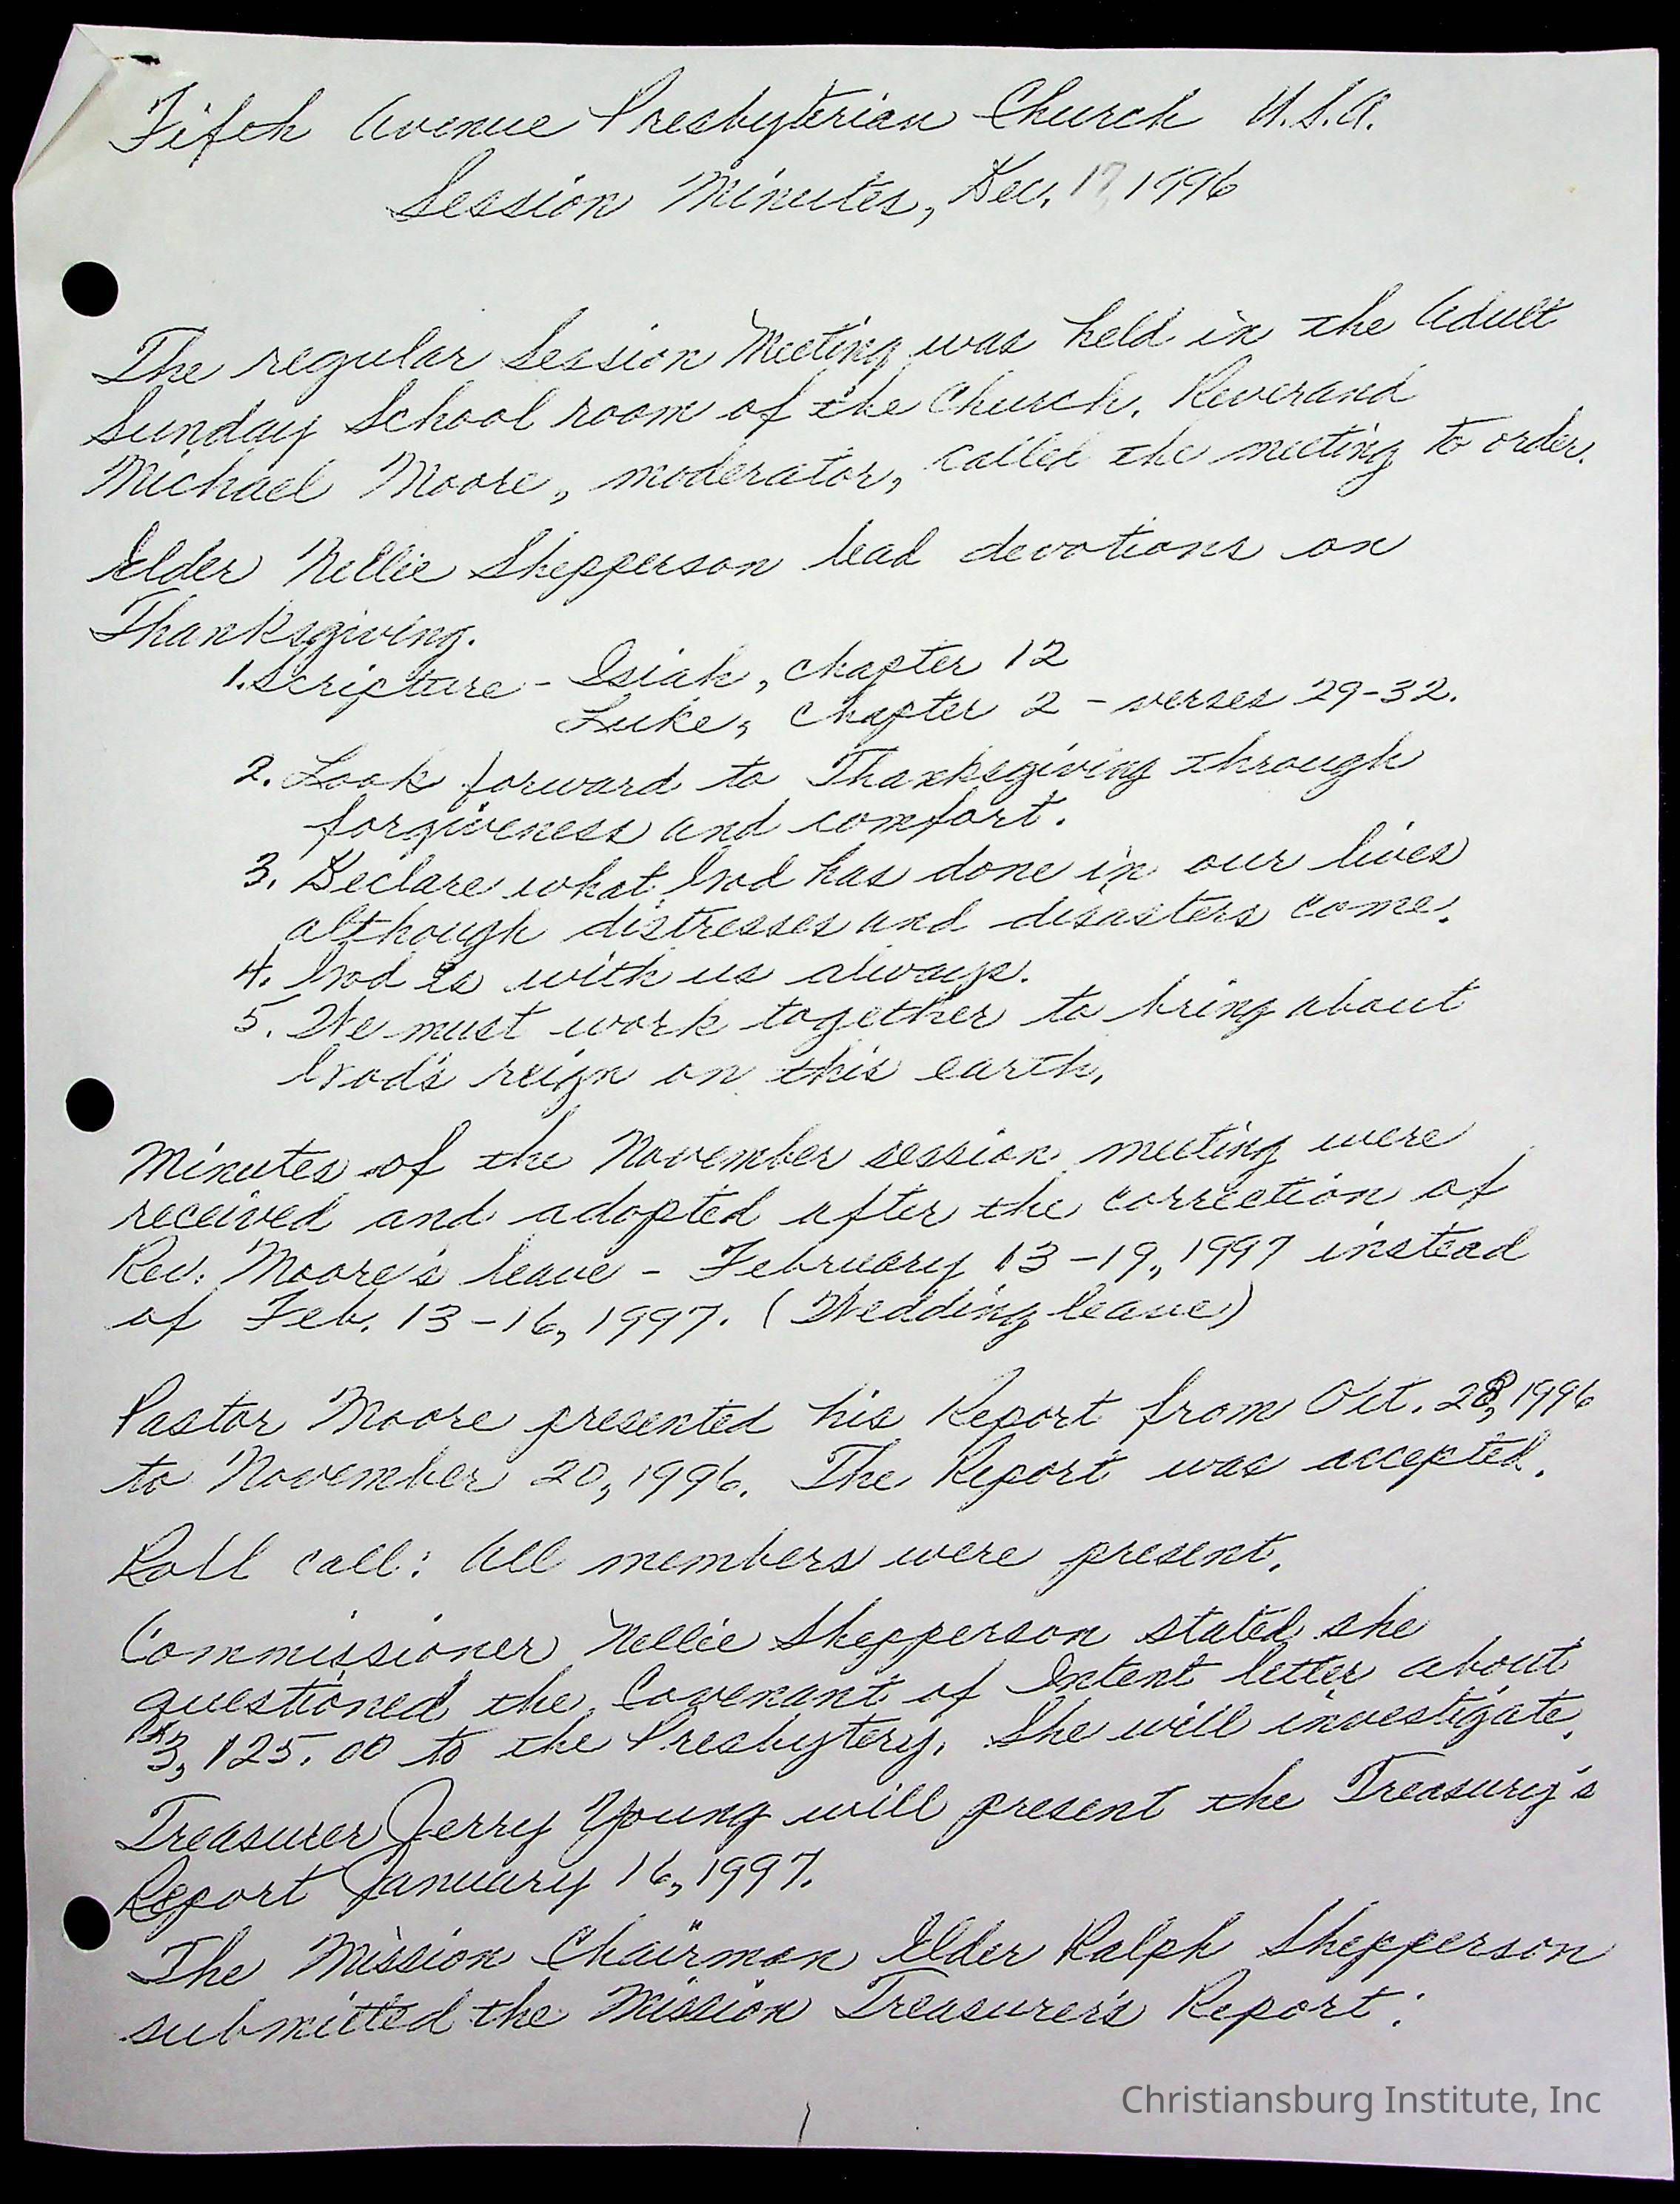 Fifth Avenue Presbyterian Church U.S.A.
Session Minutes, Dec. 17, 1996
The regular Session Meeting was held in the Adult
Sunday School room of the Church. Reverand
Michael Moore, moderator, called the meeting to order.
Elder Nellie Shepperson lead devotions on
Thanksgiving.
1. Scripture - Isiah, Chapter 12
Luke, Chapter 2 - verses 29-32.
2. Look forward to Thanksgiving through
forgiveness and comfort.
3. Declare what God has done in our lives
although distresses and disasters come.
4. God is with us always.
5. We must work together to bring about
God's reign on this earth.
Minutes of the November session meeting were
received and adopted after the correction of
Rev. Moore's leave - February 13-19, 1997 instead
of Feb. 13-16, 1997. (Wedding leave)
Pastor Moore presented his Report from Oct. 28, 1996
to November 20, 1996. The Report was accepted.
Roll call: All members were present.
Commissioner Nellie Shepperson stated she
questioned the Covenant of Intent letter about
$3,125.00 to the Presbytery. She will investigate.
Treasurer Jerry Young will present the Treasury's
Report January 16, 1997.
The Mission Chairman Elder Ralph Shepperson
submitted the Mission Treasurer's Report:
1
Christiansburg Institute, Inc